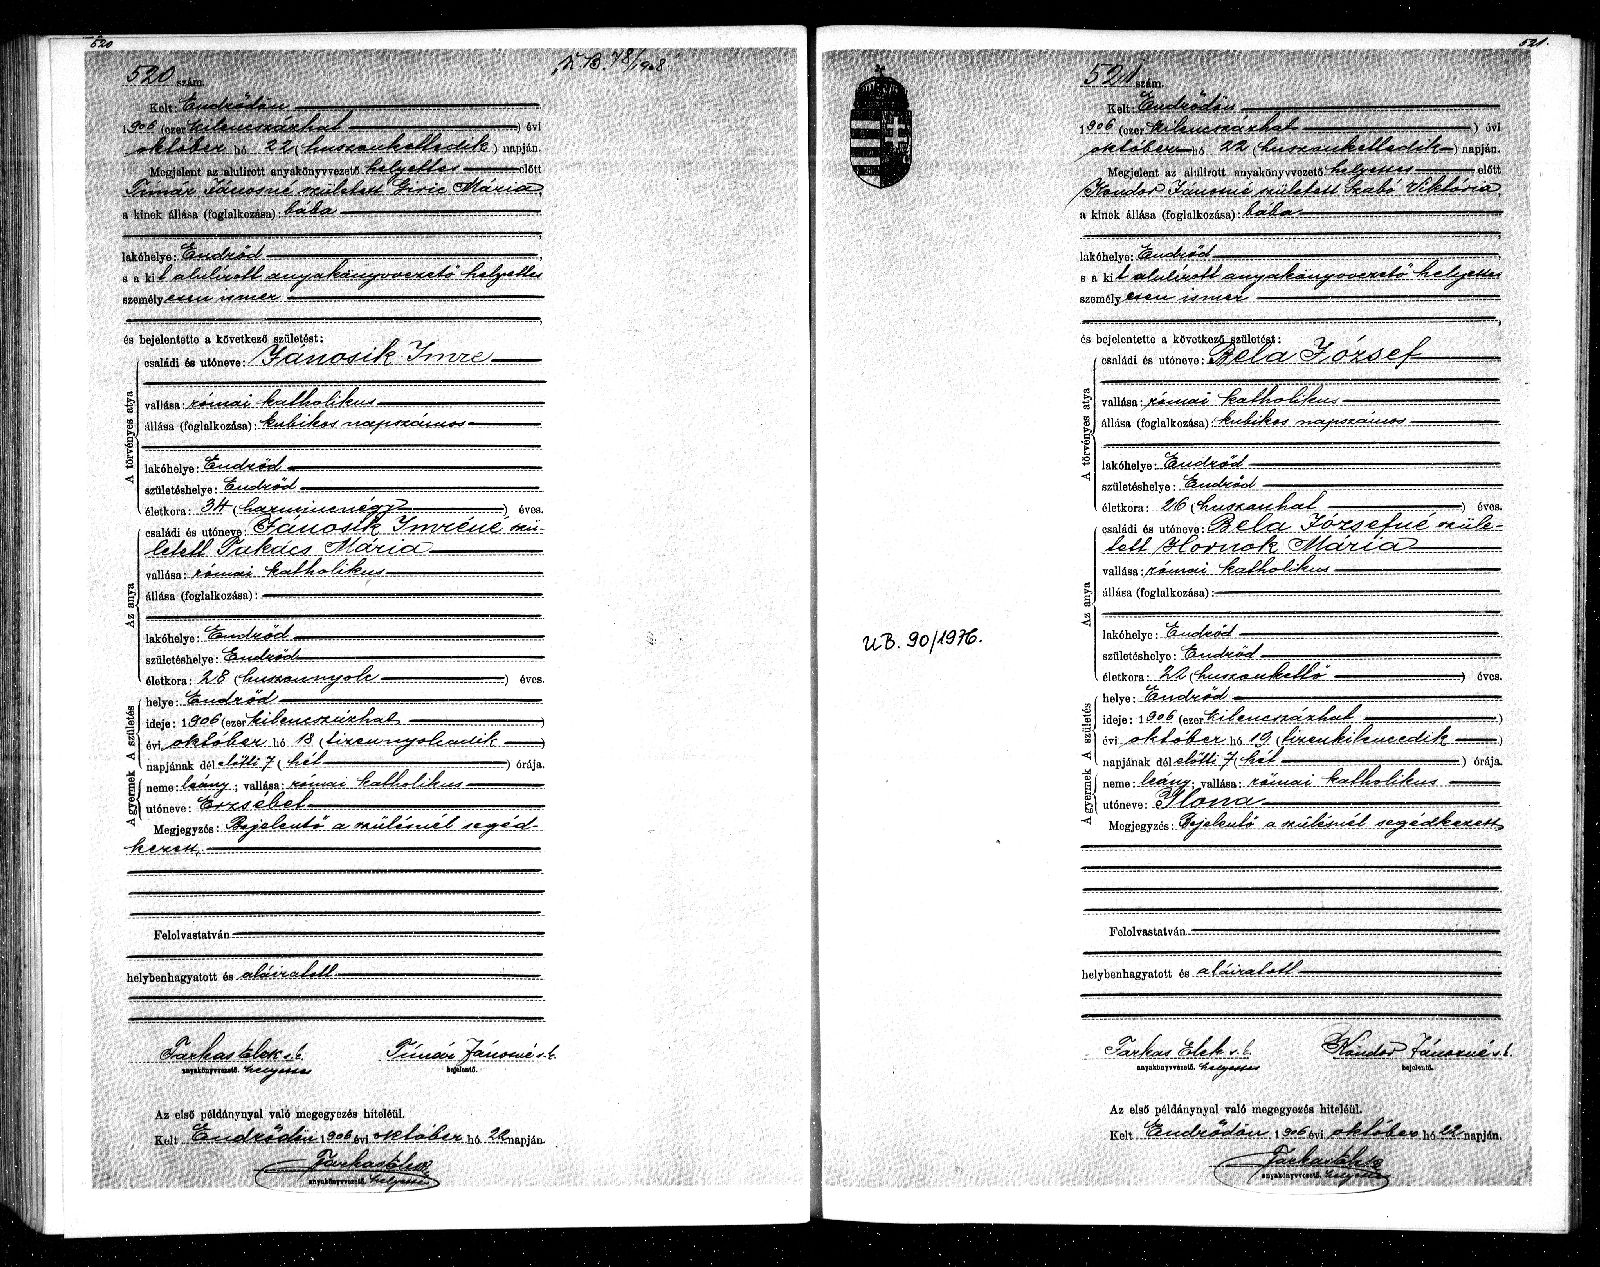 520
520 szám.
Kelt: Endrődön
1906 (ezer kilencszázhat) évi
október hó 22 (huszonkettedik) napján.
Megjelent az alulirott anyakönyvvezető helyettes előtt
Timár Jánosné született Giric Mária,
a kinek állása (foglalkozása): bába
lakóhelye: Endrőd
s a kit alulírott anyakönyvvezető helyettes
személyesen ismer
és bejelentette a következő születést:
A törvényes atya
családi és utóneve: Jánosik Imre
vallása: római katholikus
állása (foglalkozása): kubikos napszámos
lakóhelye: Endrőd
születéshelye: Endrőd
életkora: 34 (harmincnégy) éves.
Az anya
családi és utóneve: Jánosik Imréné szü-
letett Takács Mária
vallása: római katholikus
állása (foglalkozása):
lakóhelye: Endrőd
születéshelye: Endrőd
életkora: 28 (huszonnyolc) éves.
A születés
helye: Endrőd
ideje: 1906 (ezer kilencszázhat)
évi október hó 18 (tizennyolcadik)
napjának dél előtti 7 (hét) órája.
A gyermek
neme: leány; vallása: római katholikus
utóneve: Erzsébet
Megjegyzés: Bejelentő a szülésnél segéd-
kezett.
Felolvastatván
helybenhagyatott és aláiratott
Farkas Elek s.k. Timár Jánosné s.k.
anyakönyvvezető. helyettes bejelentő.
Az első példánynyal való megegyezés hiteléül.
Kelt Endrődön 1906 évi október hó 22 napján.
Farkas Elek
anyakönyvvezető. helyettes
521.
521 szám.
Kelt: Endrődön
1906 (ezer kilencszázhat) évi
október hó 22 (huszonkettedik) napján.
Megjelent az alulirott anyakönyvvezető helyettes előtt
Kondor Jánosné született Szabó Viktória,
a kinek állása (foglalkozása): bába
lakóhelye: Endrőd
s a kit alulírott anyakönyvvezető helyettes
személyesen ismer
és bejelentette a következő születést:
A törvényes atya
családi és utóneve: Bela József
vallása: római katholikus
állása (foglalkozása): kubikos napszámos
lakóhelye: Endrőd
születéshelye: Endrőd
életkora: 26 (huszonhat) éves.
Az anya
családi és utóneve: Bela Józsefné szüle-
tett Hornok Mária
vallása: római katholikus
állása (foglalkozása):
lakóhelye: Endrőd
születéshelye: Endrőd
életkora: 22 (huszonkettő) éves.
A születés
helye: Endrőd
ideje: 1906 (ezer kilencszázhat)
évi október hó 19 (tizenkilencedik)
napjának dél előtti 7 (hét) órája.
A gyermek
neme: leány; vallása: római katholikus
utóneve: Ilona
Megjegyzés: Bejelentő a szülésnél segédkezett
Felolvastatván
helybenhagyatott és aláiratott
Farkas Elek s.k. Kondor Jánosné s.k.
anyakönyvvezető. helyettes bejelentő.
Az első példánynyal való megegyezés hiteléül.
Kelt Endrődön 1906 évi október hó 22 napján.
Farkas Elek
anyakönyvvezető. helyettes
UB. 90/1976.